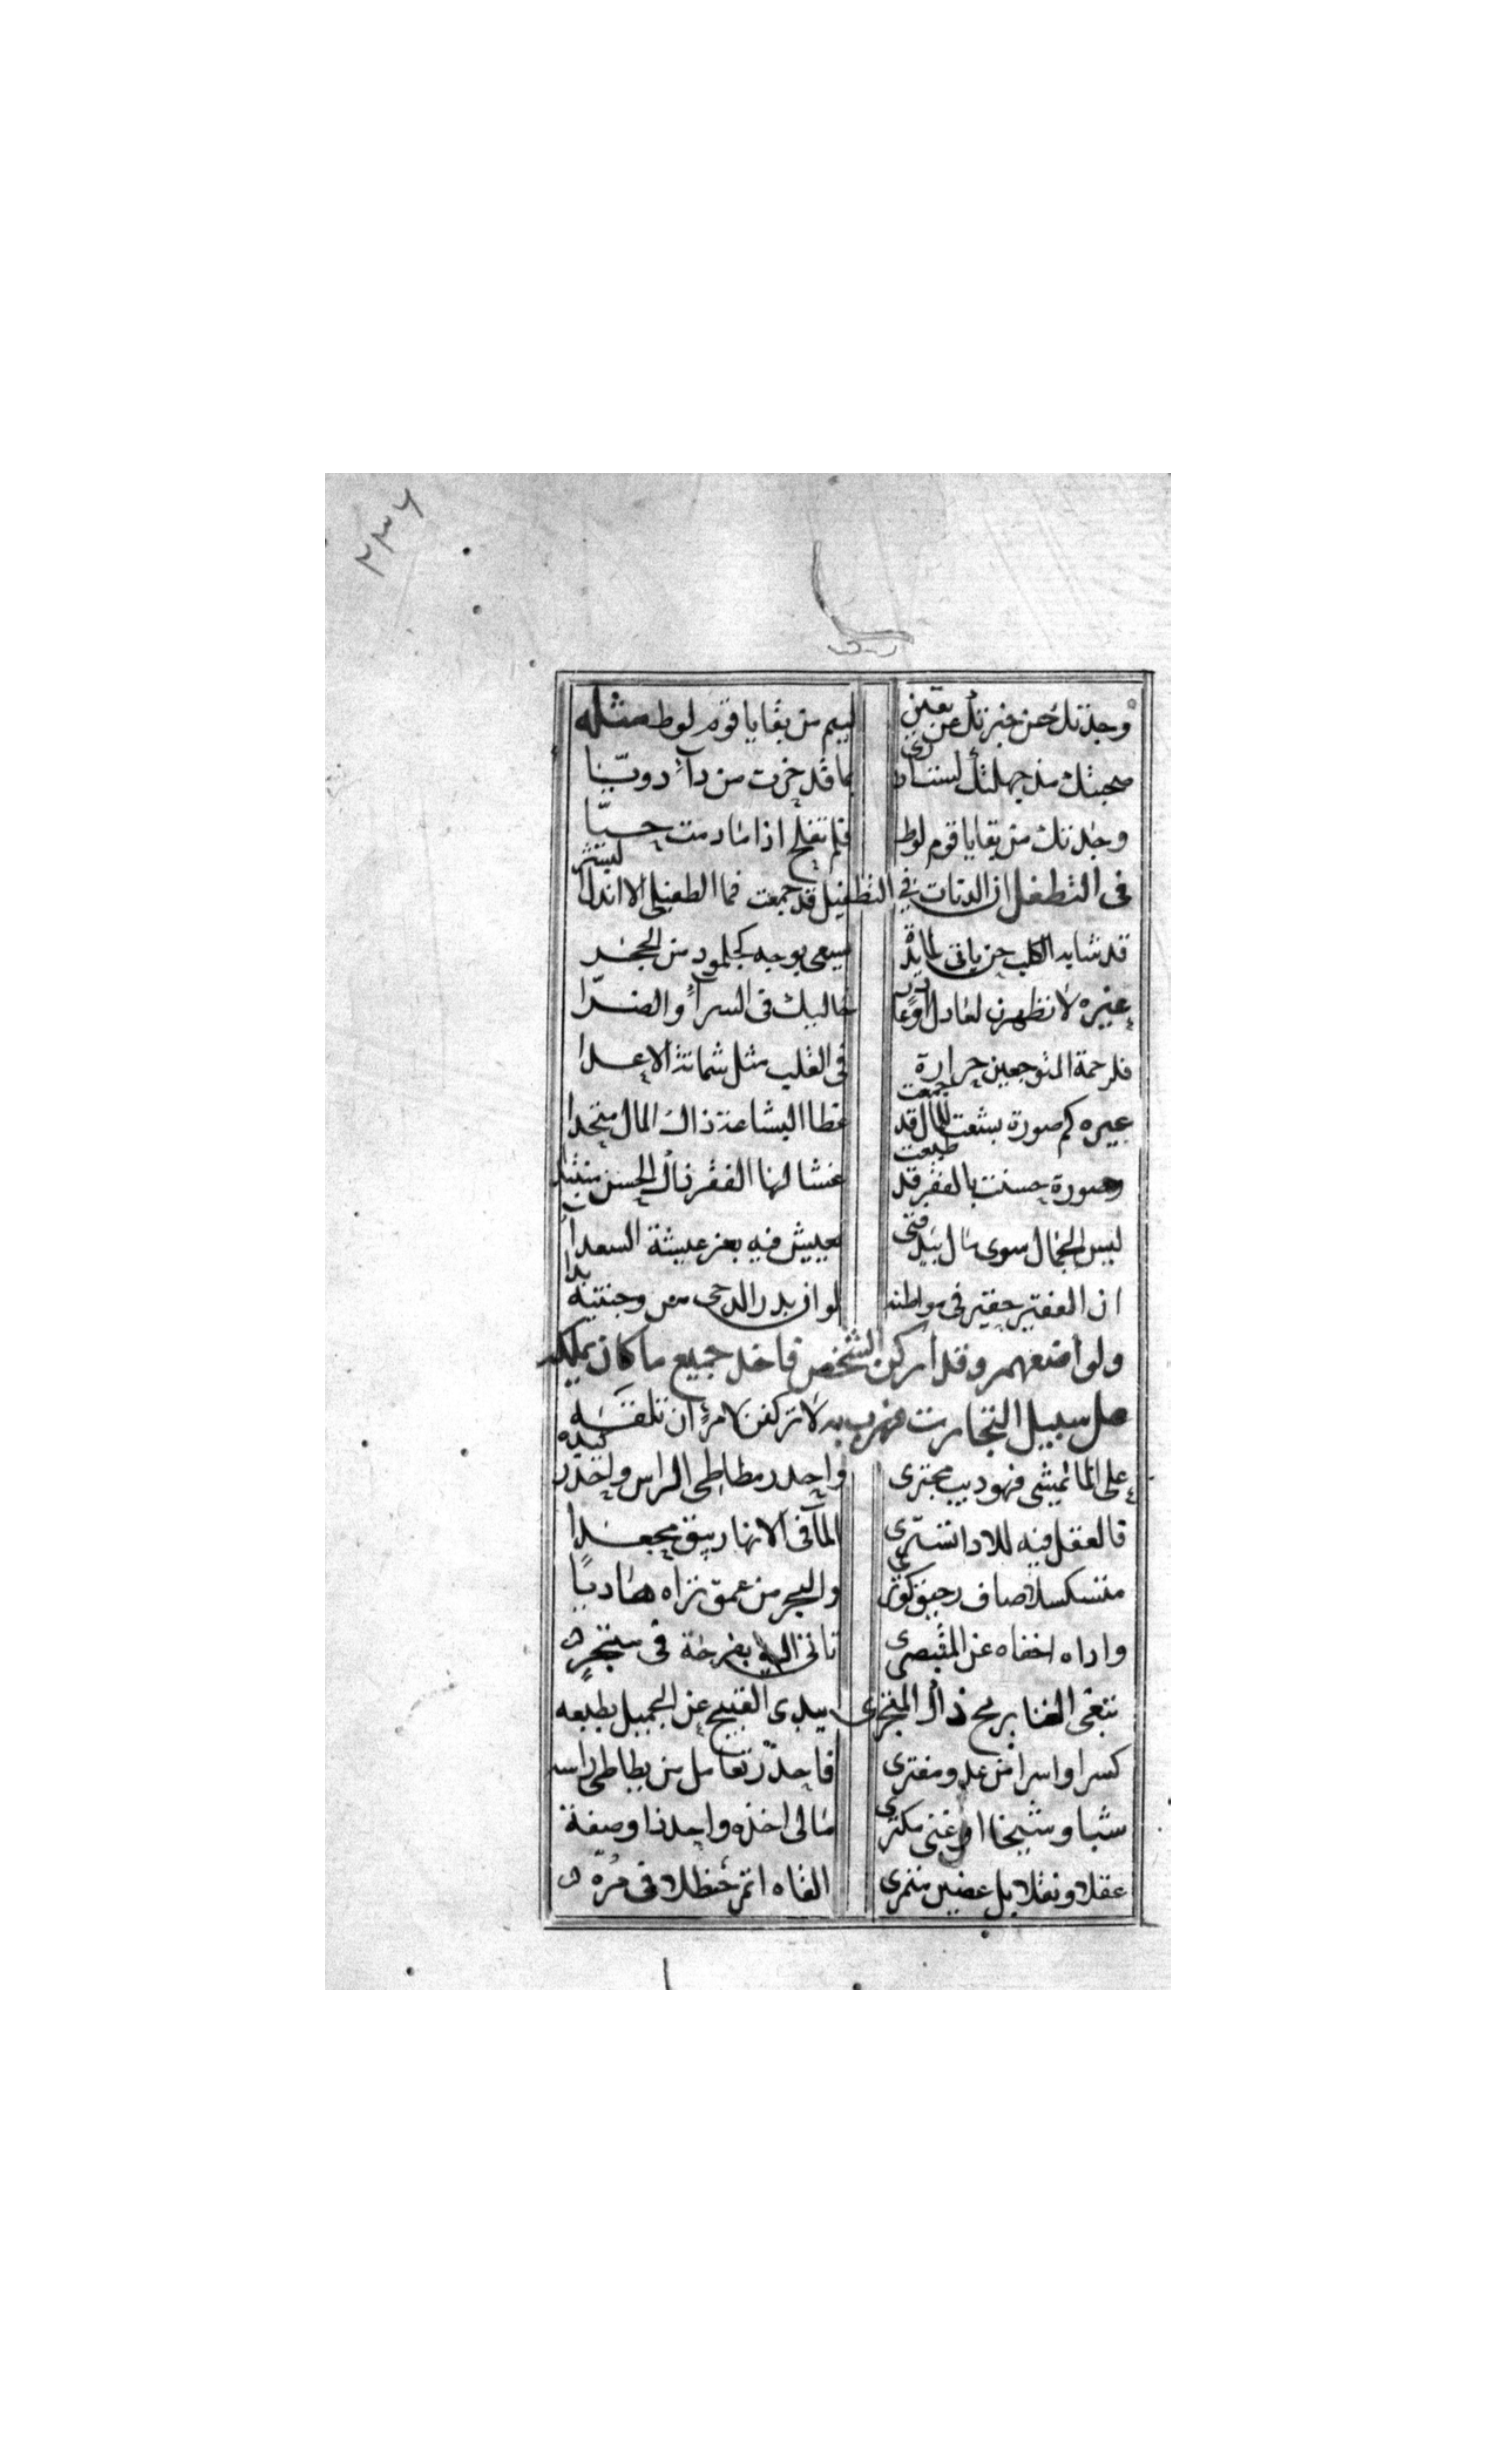 ٢٣٦
وجدتك حين خبرتك عن يقين لييم من بقايا قوم لوط مثله
صحبتك مذ جهلتك لست ادري بما قد حزت من دآء دويّا
وجدتك من بقايا قوم لوط فلم تفلح اذا ما دمت حيّا
في التطفل ان الدنآت في التطفيل قد جمعت فما الطفيلي الا اندل
قد شابه الكلب حين ياتي لمايدة يسعى بوجه كجلمود من الحجر
غيره لا تظهرن لعاذل او عاذر حاليك في السرآء والضرّا
فلرحمة المتوجعين حرارة في القلب مثل شماتة الاعدا
غيره كم صورة بشعت للمال قد جمعت غطا البشاعة ذاك المال
وصورة حسنت بالفقر قد طبعت غشا لها الفقر ذاك الحسن
ليس الجمال سوى مال بيد فتى يعيش فيه بعز عيشة السعدا
ان الفقير حقير في مواطنه لو ان بدر الدجى من وجنتيه بدا
ولواضعهم وقد اركن الشخص فاخذ جميع ما كان يملكه
على سبيل التجارت فهرب به لا تركنن لامرئ ان تلقه
على الما تمشي فهو دبيب مجتري واحذر مطاطي الراس واحذر كيده
فالعقل فيه للاد الما في الانهار يبق
صاف رحيق كوثري والبحر من عمق تراه هاديا
واداه اخفاه عن المتبصري تاتي اليه بفرحة في ستجر
تبغي الغنا بربح ذاك المتجري يبدي القبيح عن الجميل بطبعه
كسرا واسرا من عدو مفتري فاحذر تعامل من يطاطي راسه
شبا وشيخا او غني مكثري مالي اخذه واحد ذا وصفة
عقلا ونقلا بل القاه اتمر حنظلا في مرّه